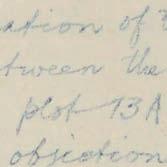 ation of
tween the
plot 13A
objection